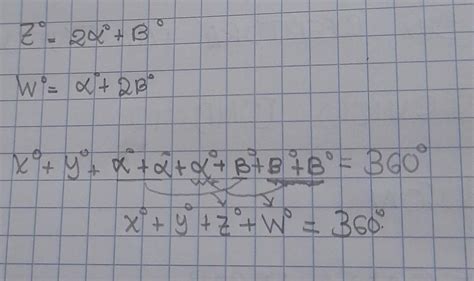 Z° = 2α° + B°
W° = α° + 2B°
x° + y° + α° + α° + α° + B° + B° + B° = 360°
x° + y° + Z° + W° = 360°